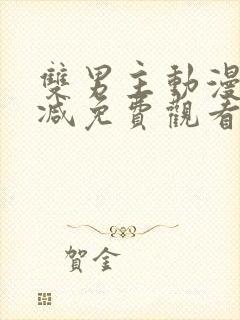 雙男主動漫
減免費觀看
賀金